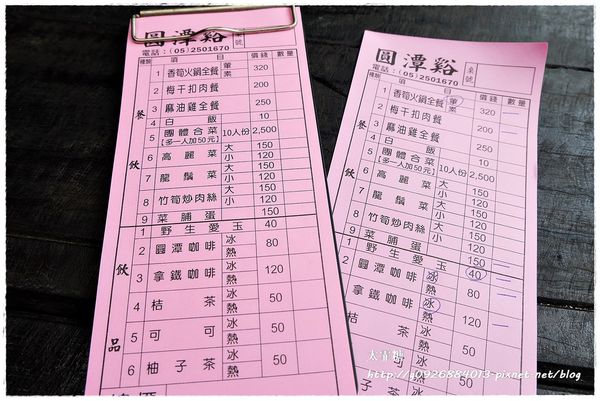 圓潭谿
桌號
電話：(05)2501670
種類 項目 價錢 數量
餐飲
1 香筍火鍋全餐 葷 素 320
2 梅干扣肉餐 200
3 麻油雞全餐 250
4 白飯 10
5 團體合菜 10人份 2,500
【多一人加50元】
6 高麗菜 大 150
小 120
7 龍鬚菜 大 150
小 120
8 竹筍炒肉絲 大 150
小 120
9 菜脯蛋 150
飲品
1 野生愛玉 40
2 圓潭咖啡 冰 熱 80
3 拿鐵咖啡 冰 熱 120
4 桔茶 冰 熱 50
5 可可 冰 熱 50
6 柚子茶 冰 熱 50
圓潭谿
桌號
電話：(05)2501670
種類 項目 價錢 數量
餐飲
1 香筍火鍋全餐 葷 素 320
2 梅干扣肉餐 200
3 麻油雞全餐 250
4 白飯 10
5 團體合菜 10人份 2,500
【多一人加50元】
6 高麗菜 大 150
小 120
7 龍鬚菜 大 150
小 120
8 竹筍炒肉絲 大 150
小 120
9 菜脯蛋 150
飲品
1 野生愛玉 40
2 圓潭咖啡 冰 熱 80
3 拿鐵咖啡 冰 熱 120
4 桔茶 冰 熱 50
5 可可 冰 熱 50
6 柚子茶 冰
http://q0926884013.pixnet.net/blog